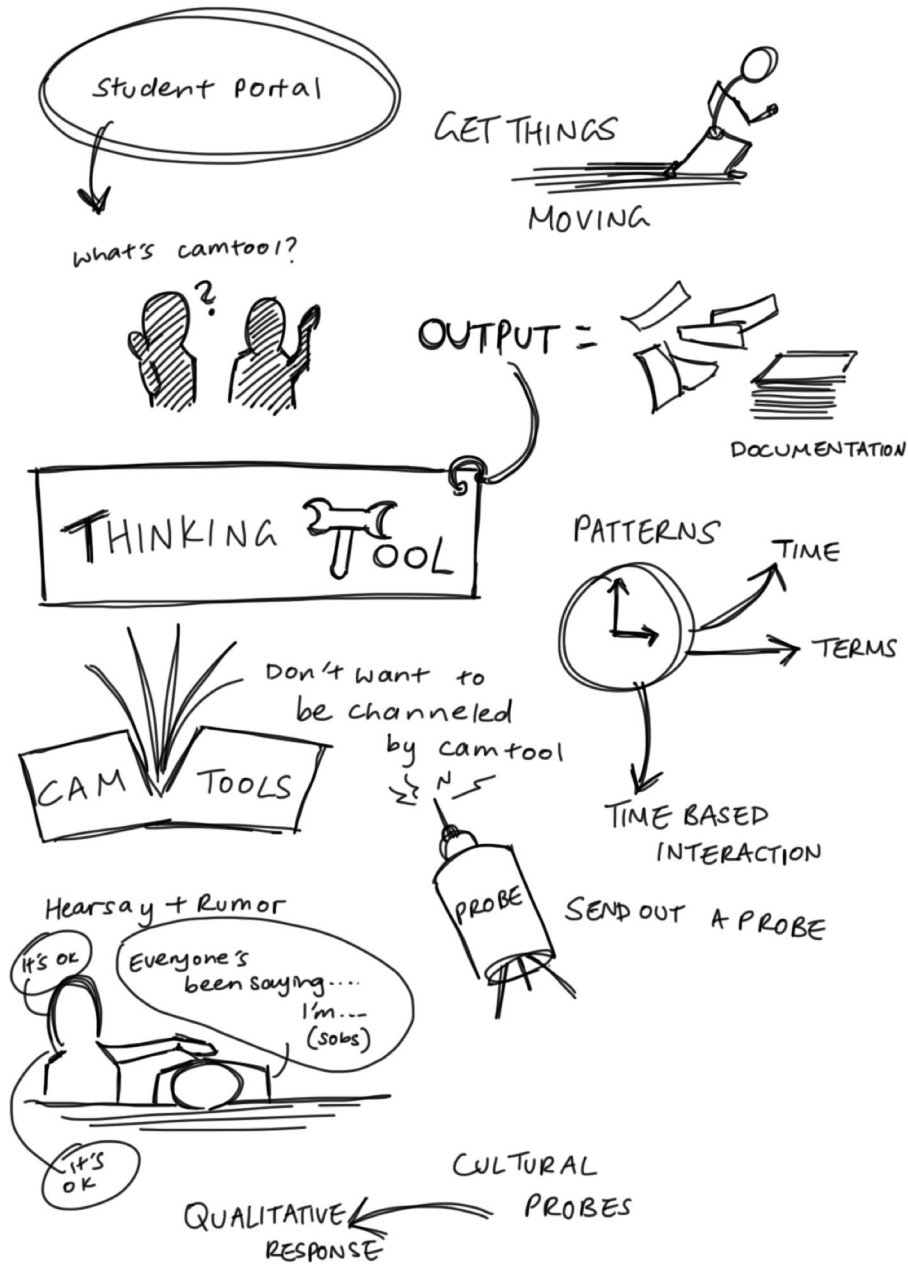 Student Portal
GET THINGS
MOVING
what's camtool?
?
OUTPUT =
DOCUMENTATION
THINKING TOOL
PATTERNS
TIME
TERMS
TIME BASED
INTERACTION
Don't want to
be channeled
by camtool
CAM TOOLS
PROBE
SEND OUT A PROBE
Hearsay + Rumor
It's OK
Everyone's
been saying....
I'm....
(sobs)
It's
OK
CULTURAL
PROBES
QUALITATIVE
RESPONSE